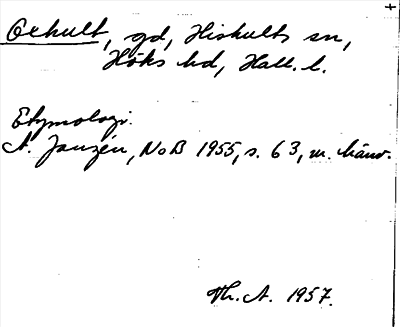 Oekult, gd, Hishults sn,
Höks hd, Hall. l.
Etymologi.
A. Janzén, NoB 1955, s. 63, m. hänv.
Th. A. 1957.